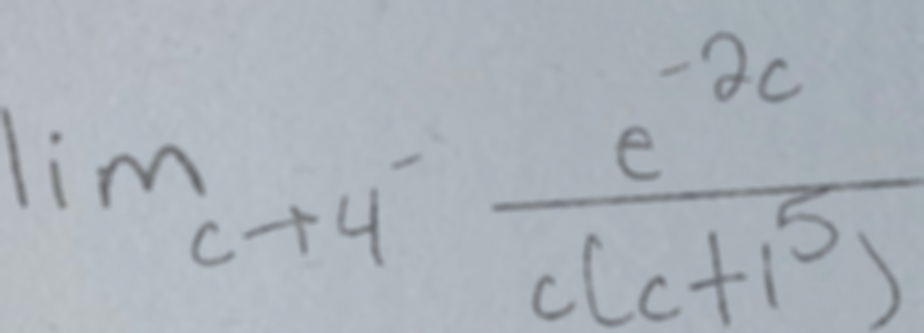 \lim_{c \to 4^-} \frac{e^{-2c}}{c(c+1^5)}